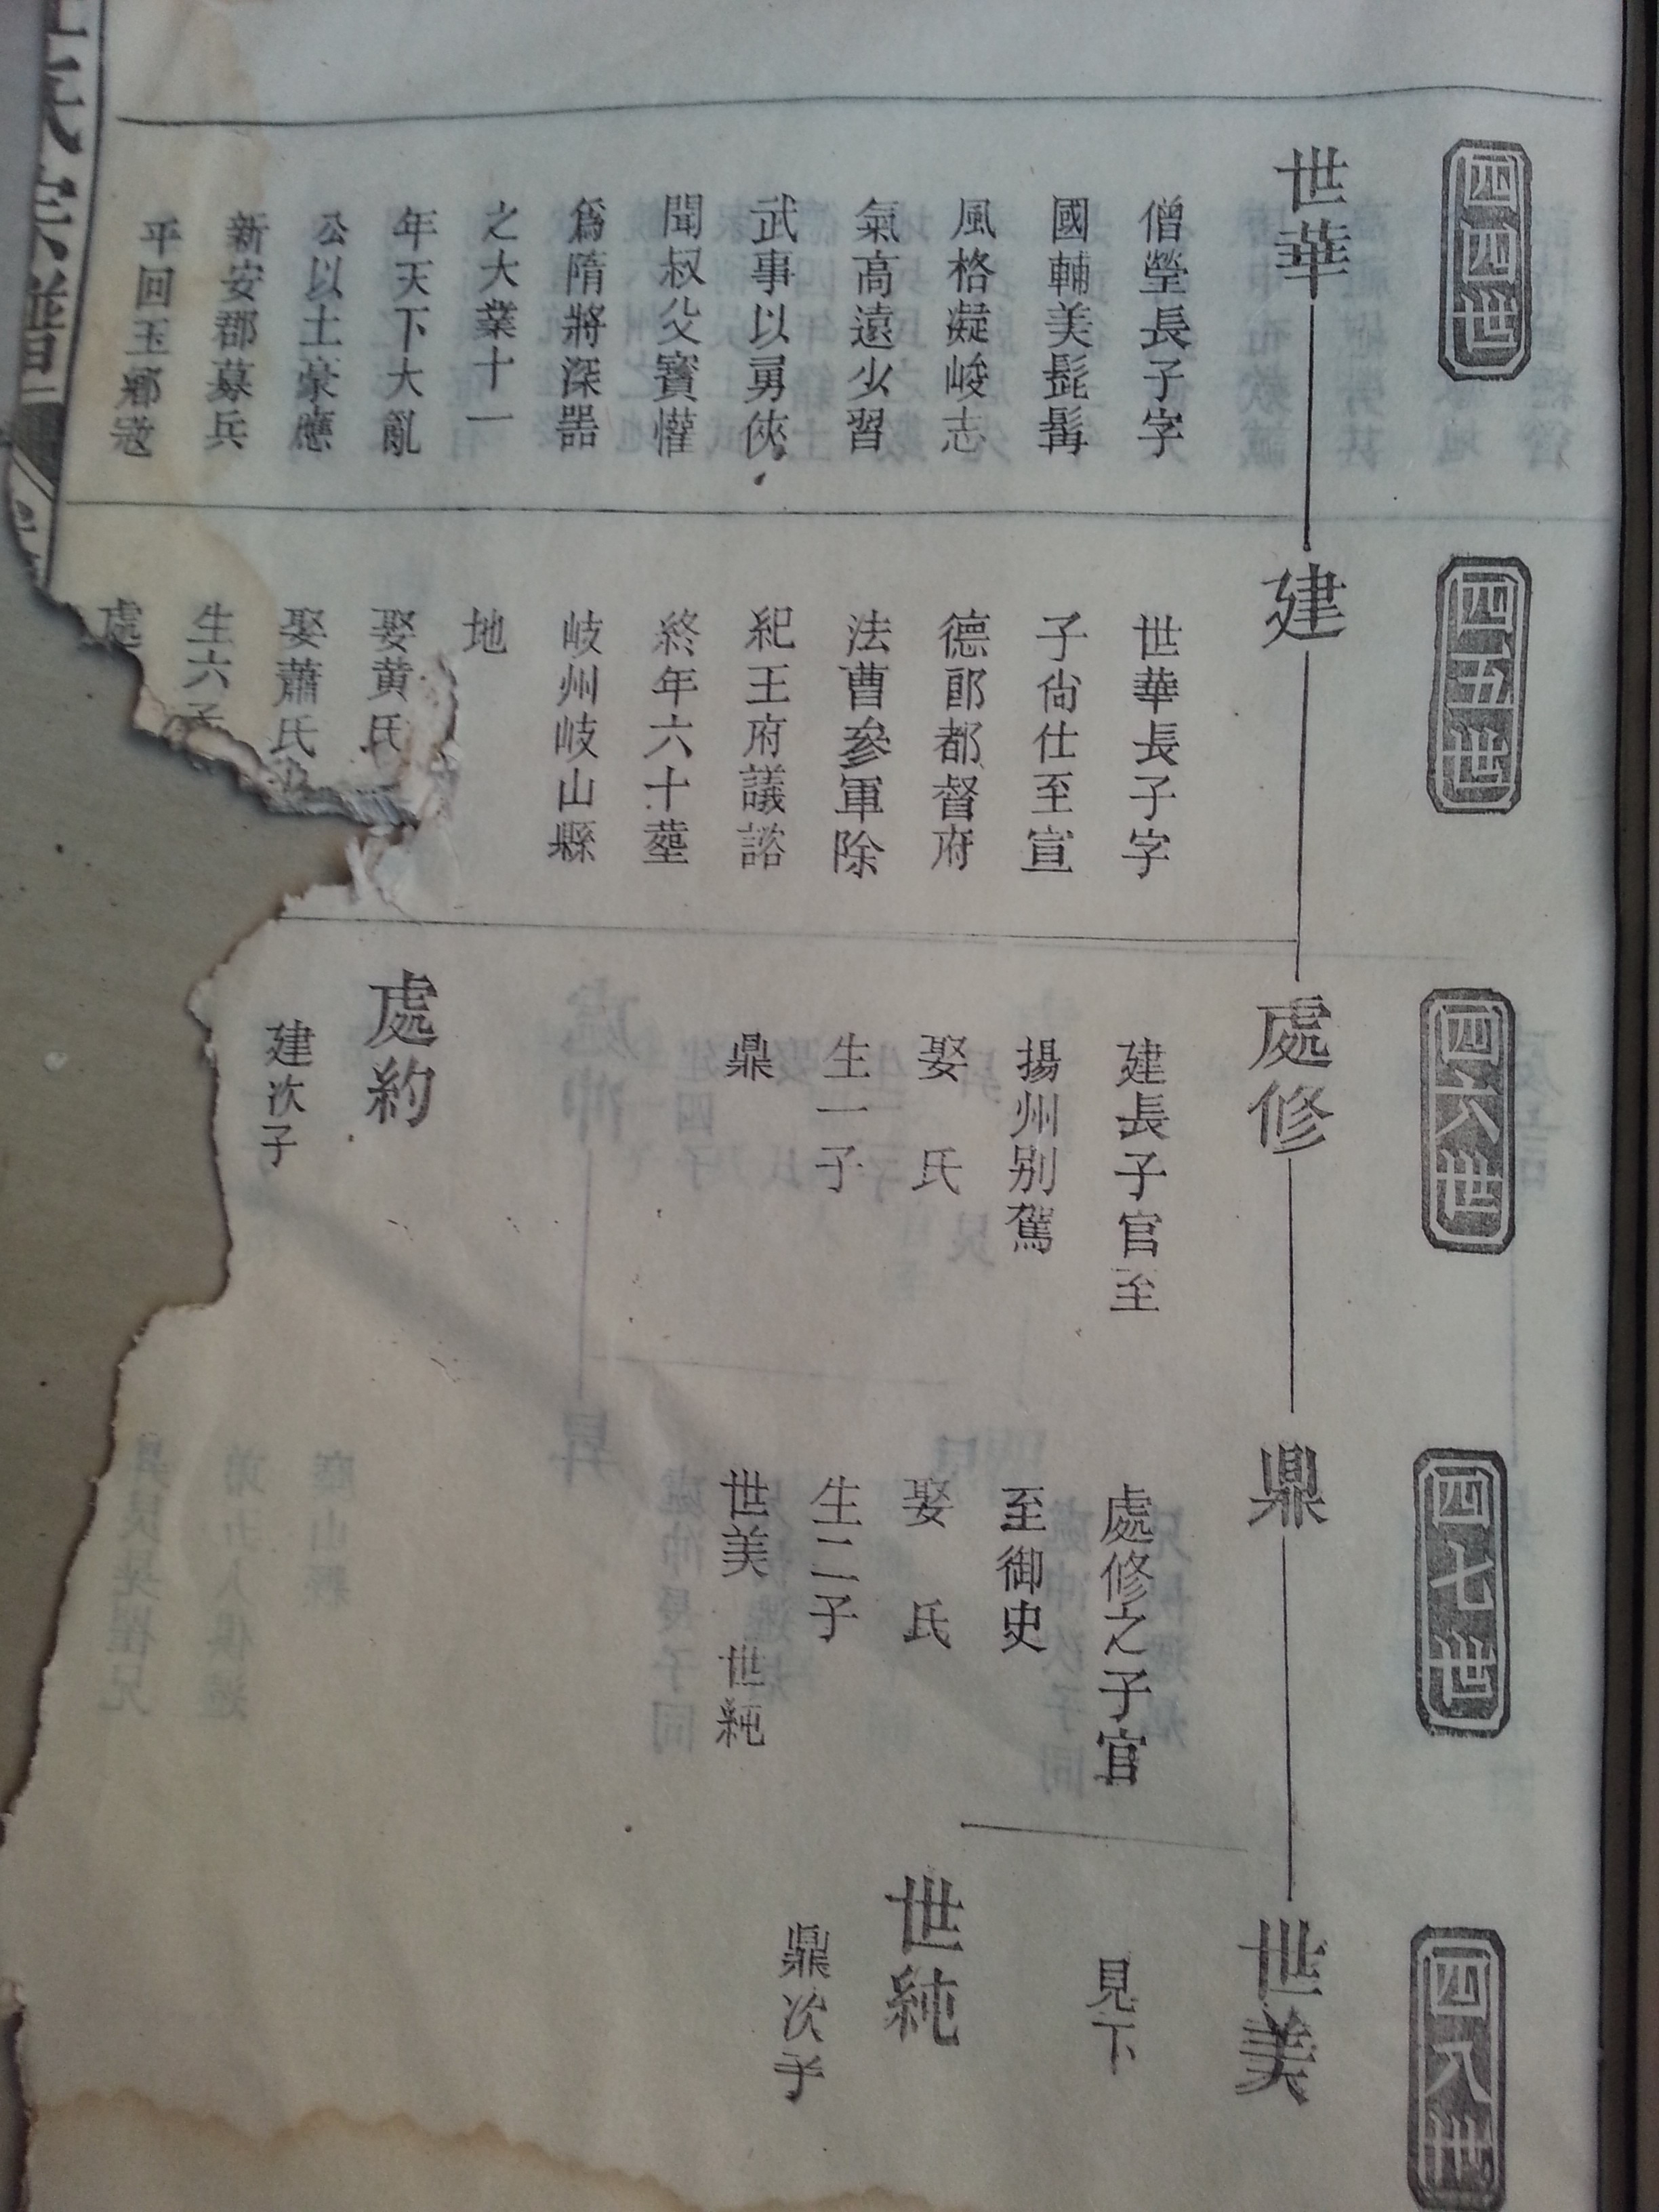 四四世
世華
僧瑩長子字
國輔美髭髯
風格凝峻志
氣高遠少習
武事以勇俠
聞叔父寳懽
爲隋將深噐
之大業十一
年天下大亂
公以土豪應
新安郡募兵
平回玉鄉宼
四五世
建
世華長子字
子尙仕至宣
德郎都督府
法曹參軍除
紀王府議諮
終年六十塟
岐州岐山縣
地
娶黄氏
娶蕭氏
生六子
處
四六世
處修
建長子官至
揚州别駕
娶 氏
生一子
鼎
處約
建次子
四七世
鼎
處修之子官
至御史
娶 氏
生二子
世美 世純
四八世
世美
見下
世純
鼎次子
氏宗譜